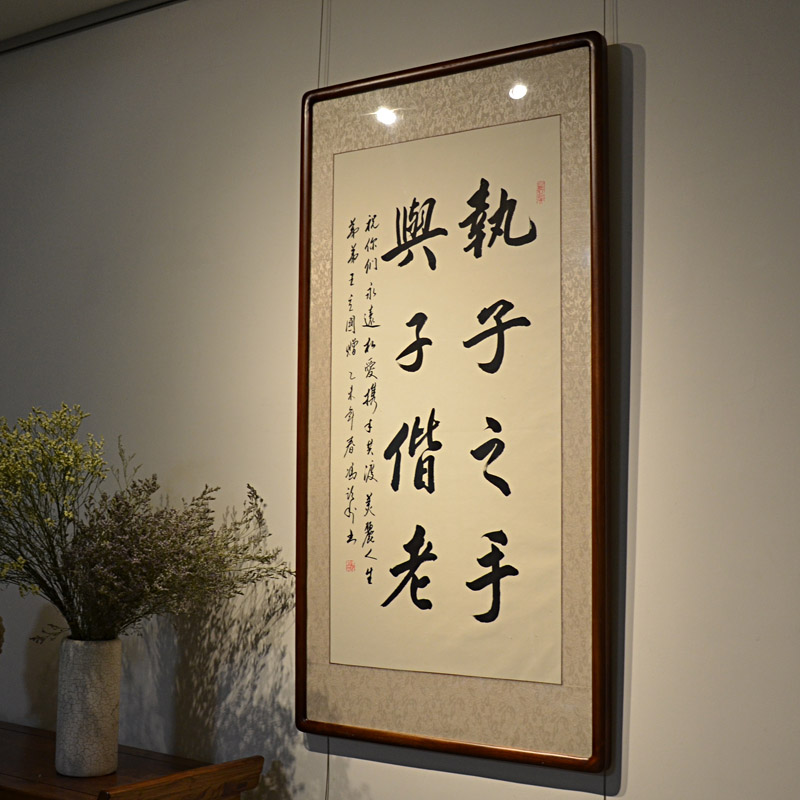 執子之手
與子偕老
祝你们永遠相愛携手共渡美麗人生
弟弟王立國贈 乙未年春馮